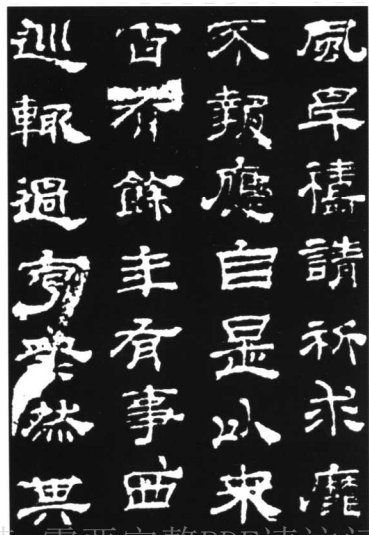 風旱禱請祈求靡
不報應自是以來
百有餘年有事西
巡輒過享祭然其
需要完整PDF请访问